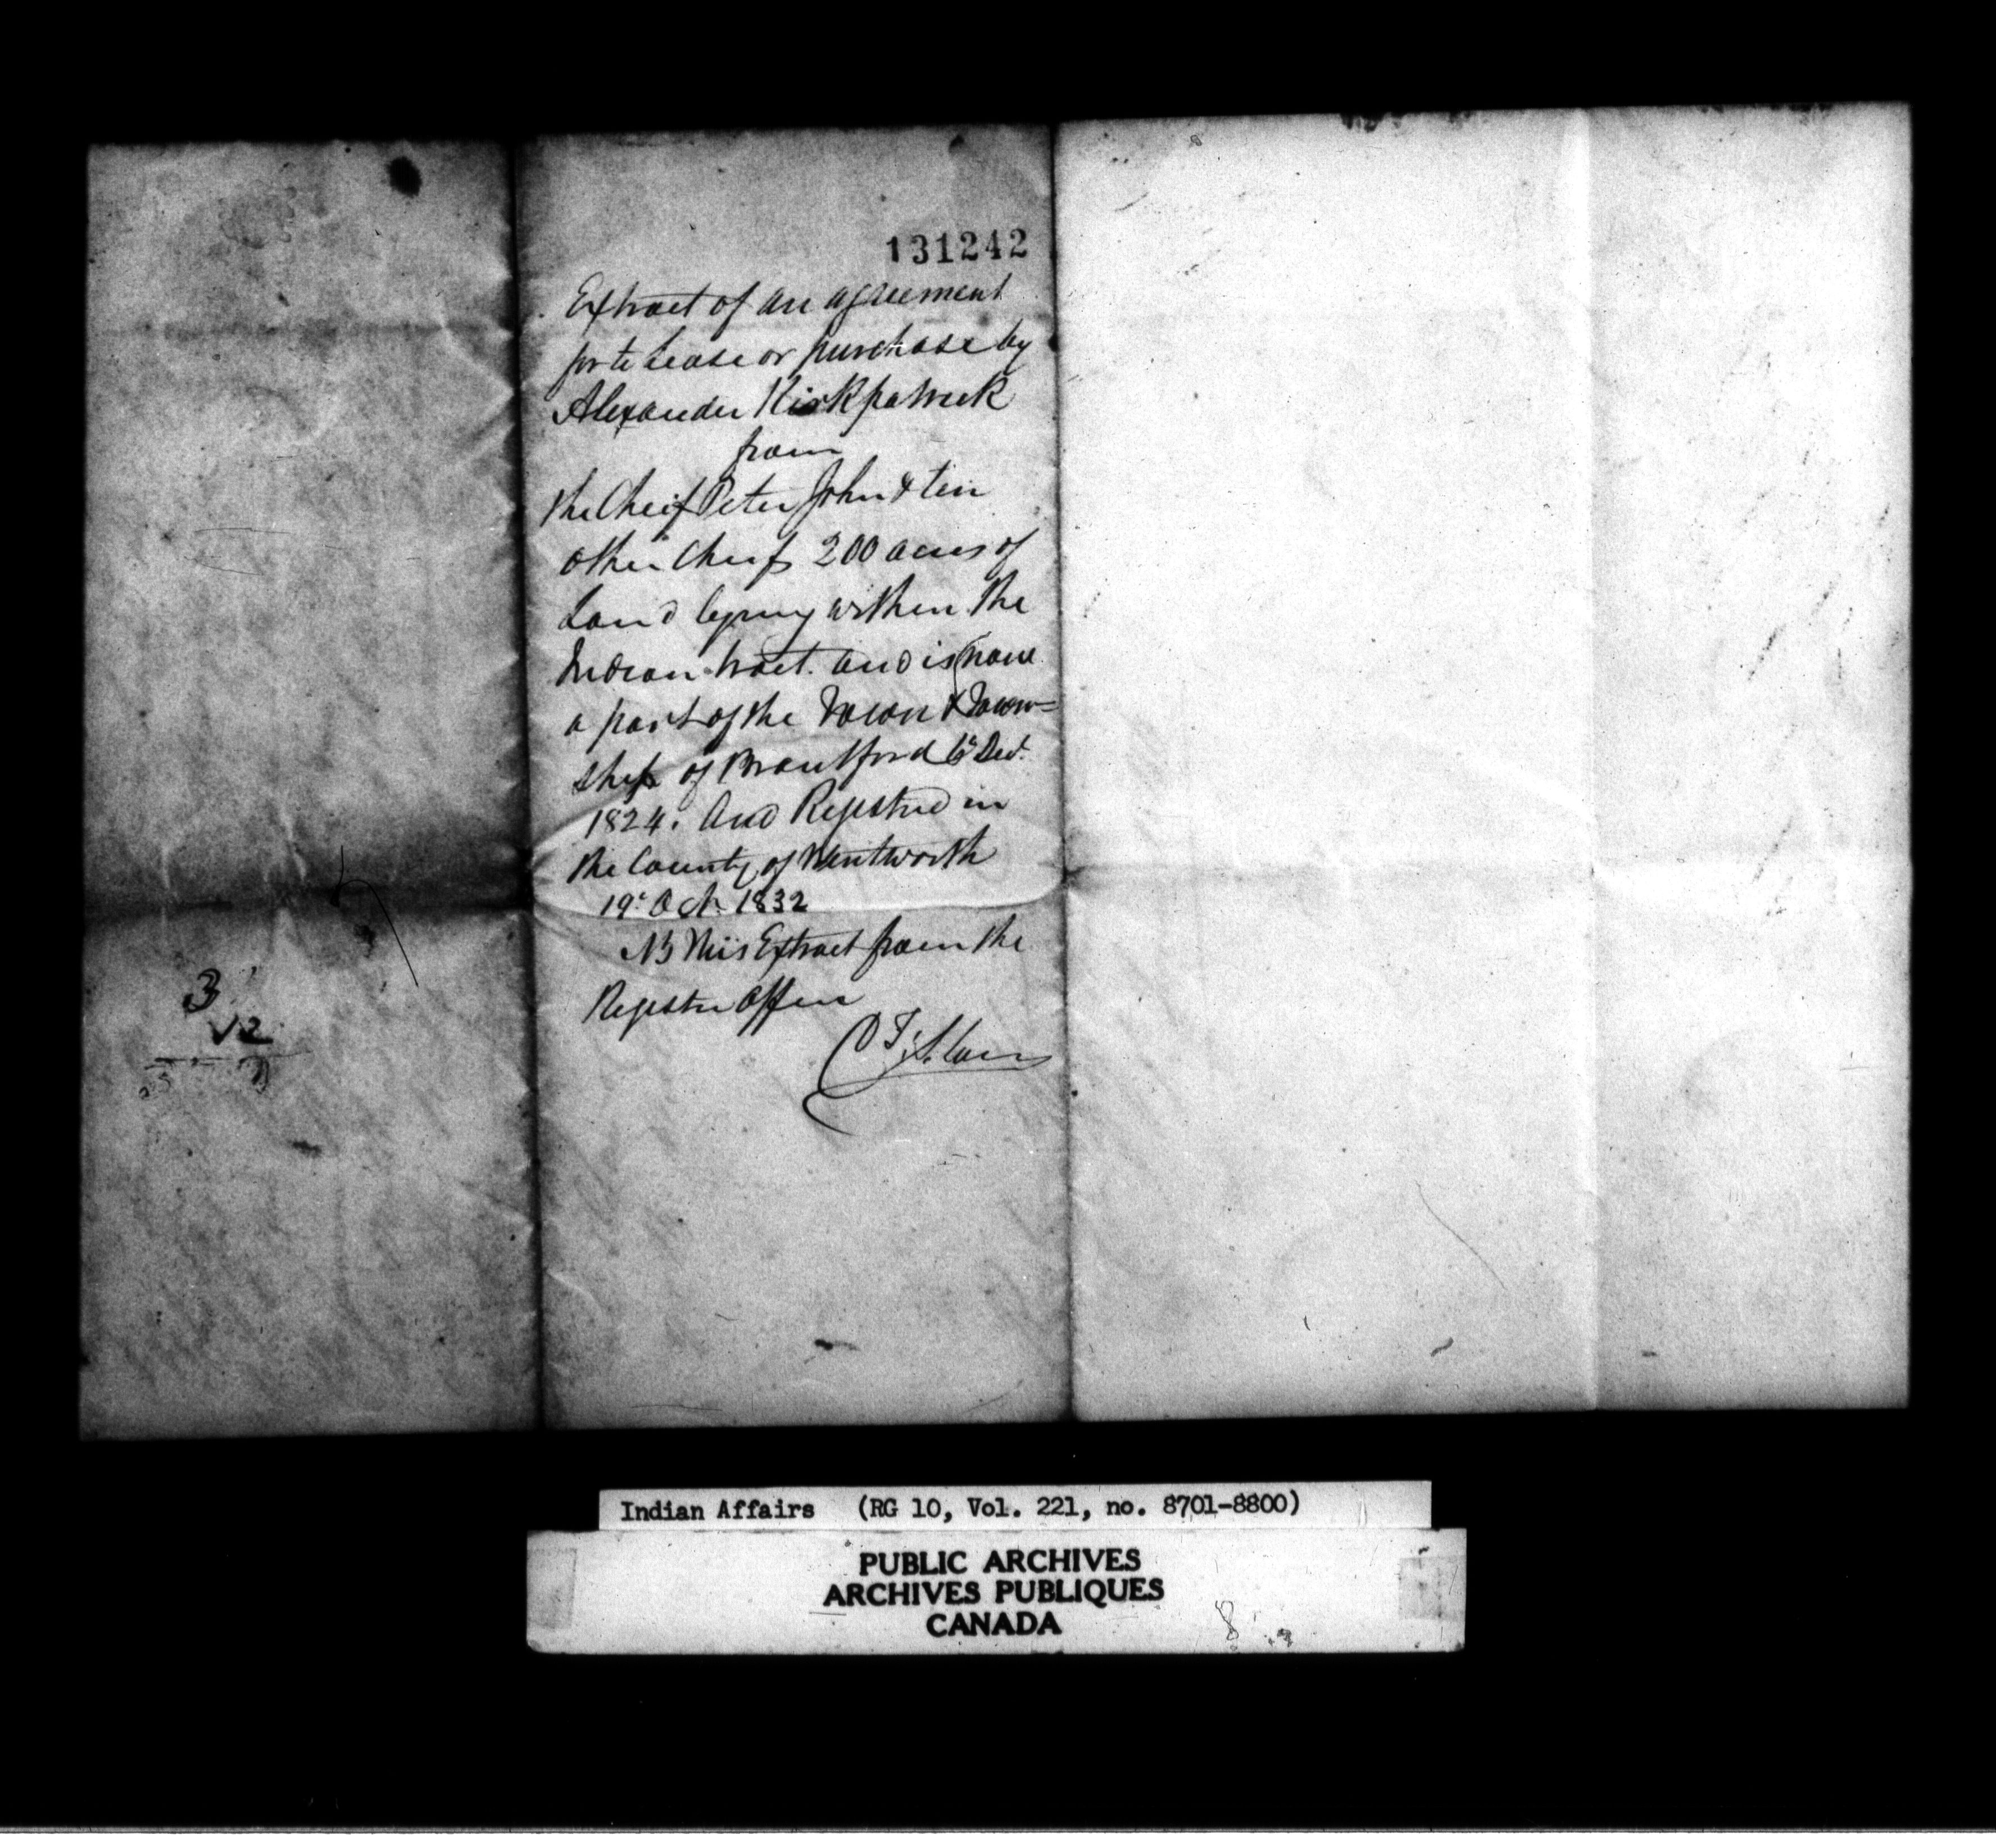 131242
Extract of an agreement
for to Lease or purchase by
Alexander Kirkpatrick
from
the Cheif Peter John & ten
other Cheifs 200 acres of
Land lyeing within the
Indian tract. and is now
a part of the Town & Town=
ship of Brantford
1824. And Registred in
the County of Wentworth
19th Oct. 1832
NB This Extract from the
Register Office
3
12
Indian Affairs (RG 10, Vol. 221, no. 8701-8800)
PUBLIC ARCHIVES
ARCHIVES PUBLIQUES
CANADA